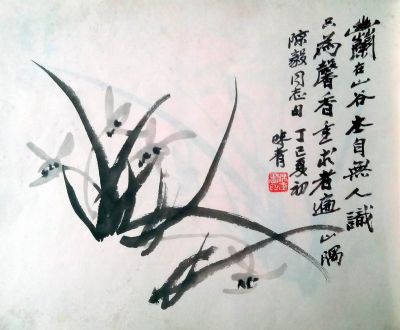 幽蘭在山谷本自無人識
只為馨香重求者遍山隅
陳毅同志句 丁巳夏初